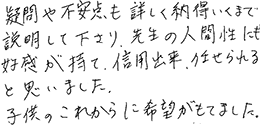 疑問や不安点も詳しく納得いくまで
説明して下さり、先生の人間性にも
好感が持て、信用出来、任せられる
と思いました。
子供のこれからに希望がもてました。